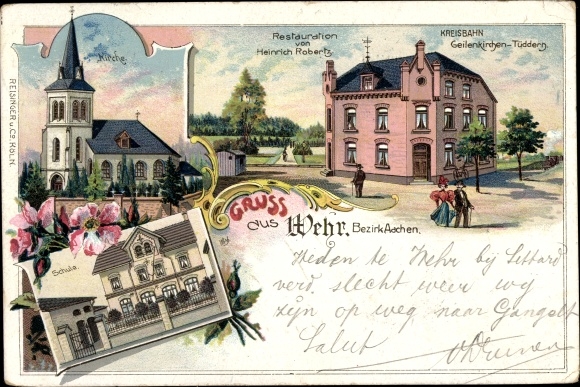 Kirche.
Restauration
von
Heinrich Robertz.
KREISBAHN
Geilenkirchen-Tüddern.
REISINGER u. Co KÖLN.
GRUSS
aus Wehr, Bezirk Aachen.
Schule.
Heden te Wehr bij Sittard
verd. slecht weer
zijn op weg naar Gangelt
Salut